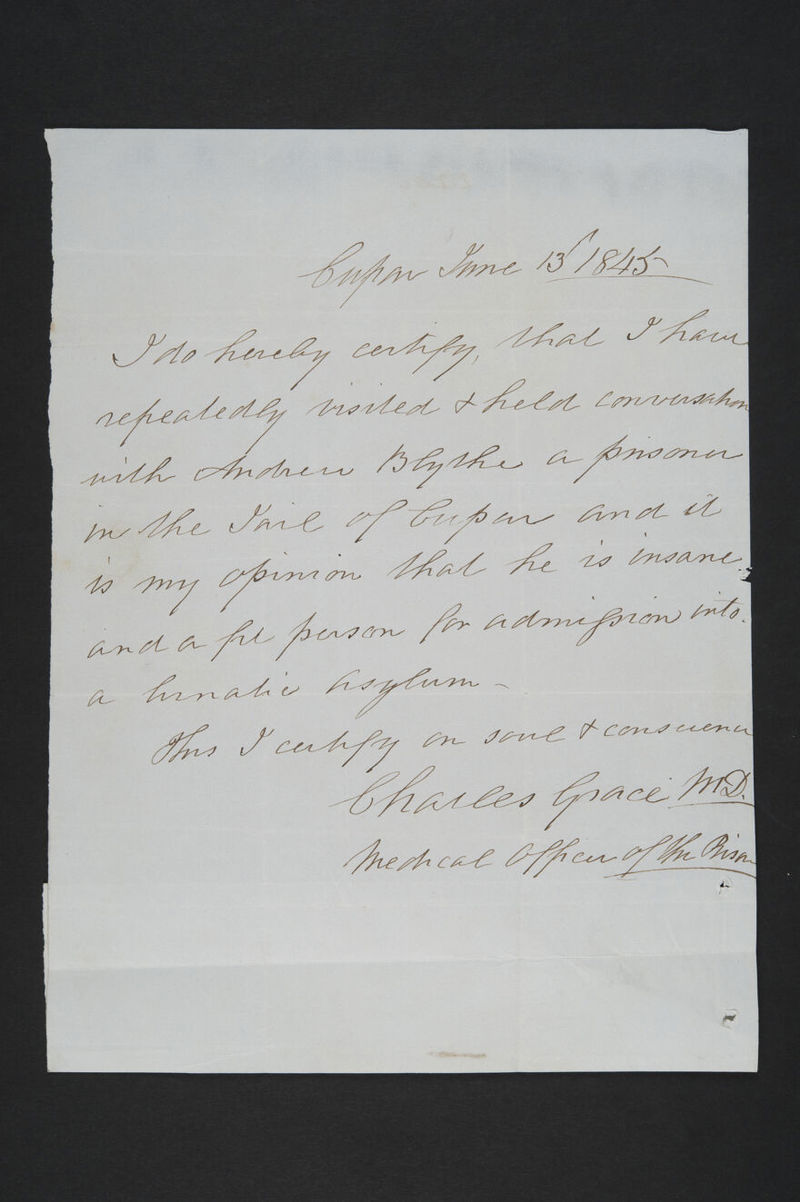 Cupar June 13 1845
I do hereby certify, that I have
repeatedly visited & held conversation
with Andrew Blythe a prisoner
in the Jail of Cupar and it
is my opinion that he is insane
and a fit person for admission into
a lunatic asylum –
This I certify on soul & conscience
Charles Grace M.D.
Medical Officer of the Prison